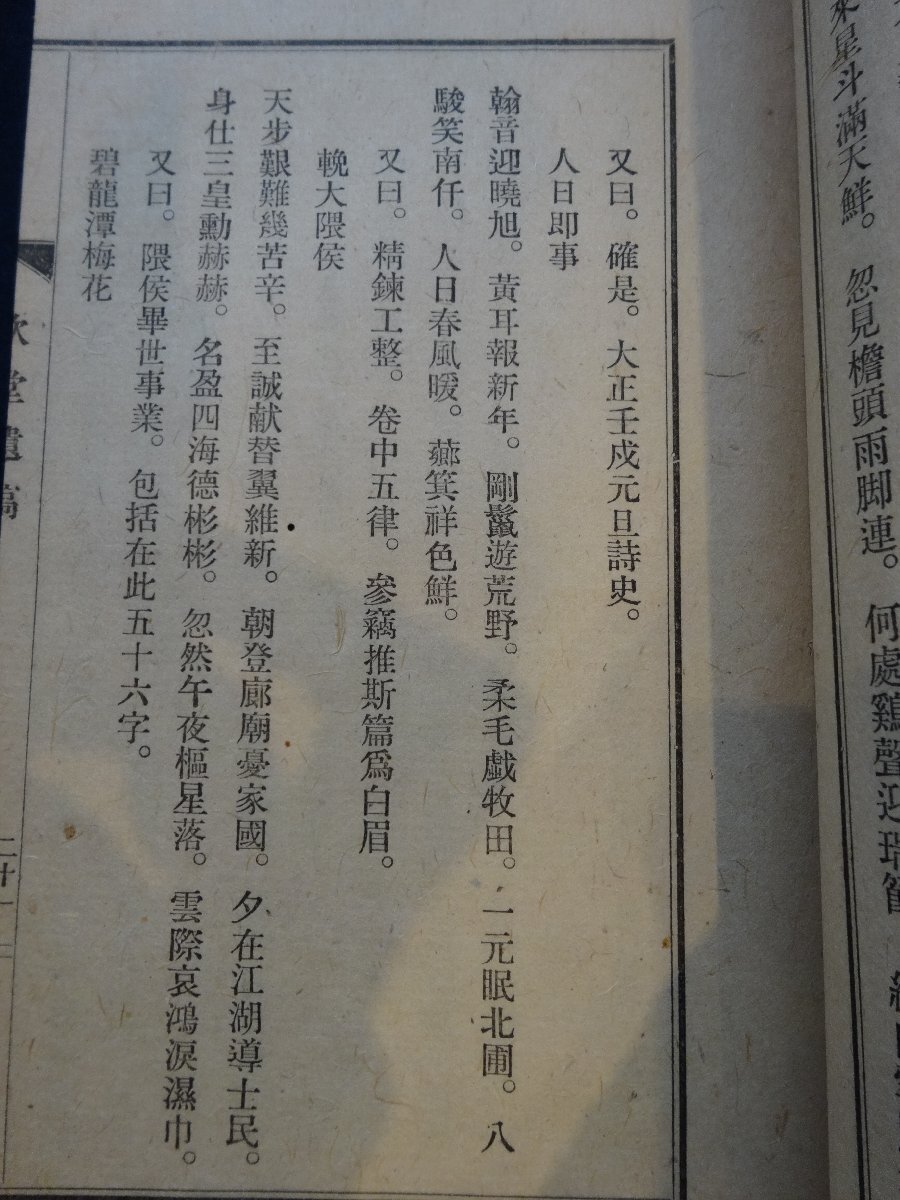 來星斗滿天鮮。忽見檐頭雨脚連。何處鷄聲迎瑞
又曰。確是。大正壬戍元旦詩史。
人日即事
翰音迎曉旭。黃耳報新年。剛鬣遊荒野。柔毛戯牧田。一元眠北圃。八
駿笑南仟。人日春風暖。薌箕祥色鮮。
又曰。精鍊工整。卷中五律。參窺推斯篇爲白眉。
輓大隈侯
天步艱難幾苦辛。至誠献替翼維新。朝登廊廟憂家國。夕在江湖導士民。
身仕三皇勳赫赫。名盈四海德彬彬。忽然午夜樞星落。雲際哀鴻淚濕巾。
又曰。隈侯畢世事業。包括在此五十六字。
碧龍潭梅花
堂遺稿
二十一